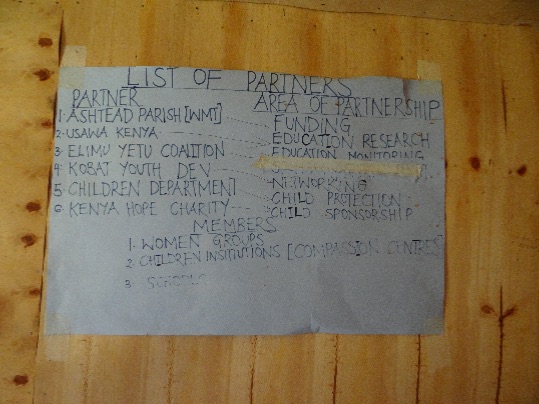 LIST OF PARTNERS
PARTNER AREA OF PARTNERSHIP
1. ASHTEAD PARISH [WMI] FUNDING
2. USAWA KENYA EDUCATION RESEARCH
3. ELIMU YETU COALITION EDUCATION MONITORING
4. KOBAT YOUTH DEV NETWORKING
5. CHILDREN DEPARTMENT CHILD PROTECTION
6. KENYA HOPE CHARITY CHILD SPONSORSHIP
MEMBERS
1. WOMEN GROUPS
2. CHILDREN INSTITUTIONS [COMPASSION CENTRES
3. SCHOOLS